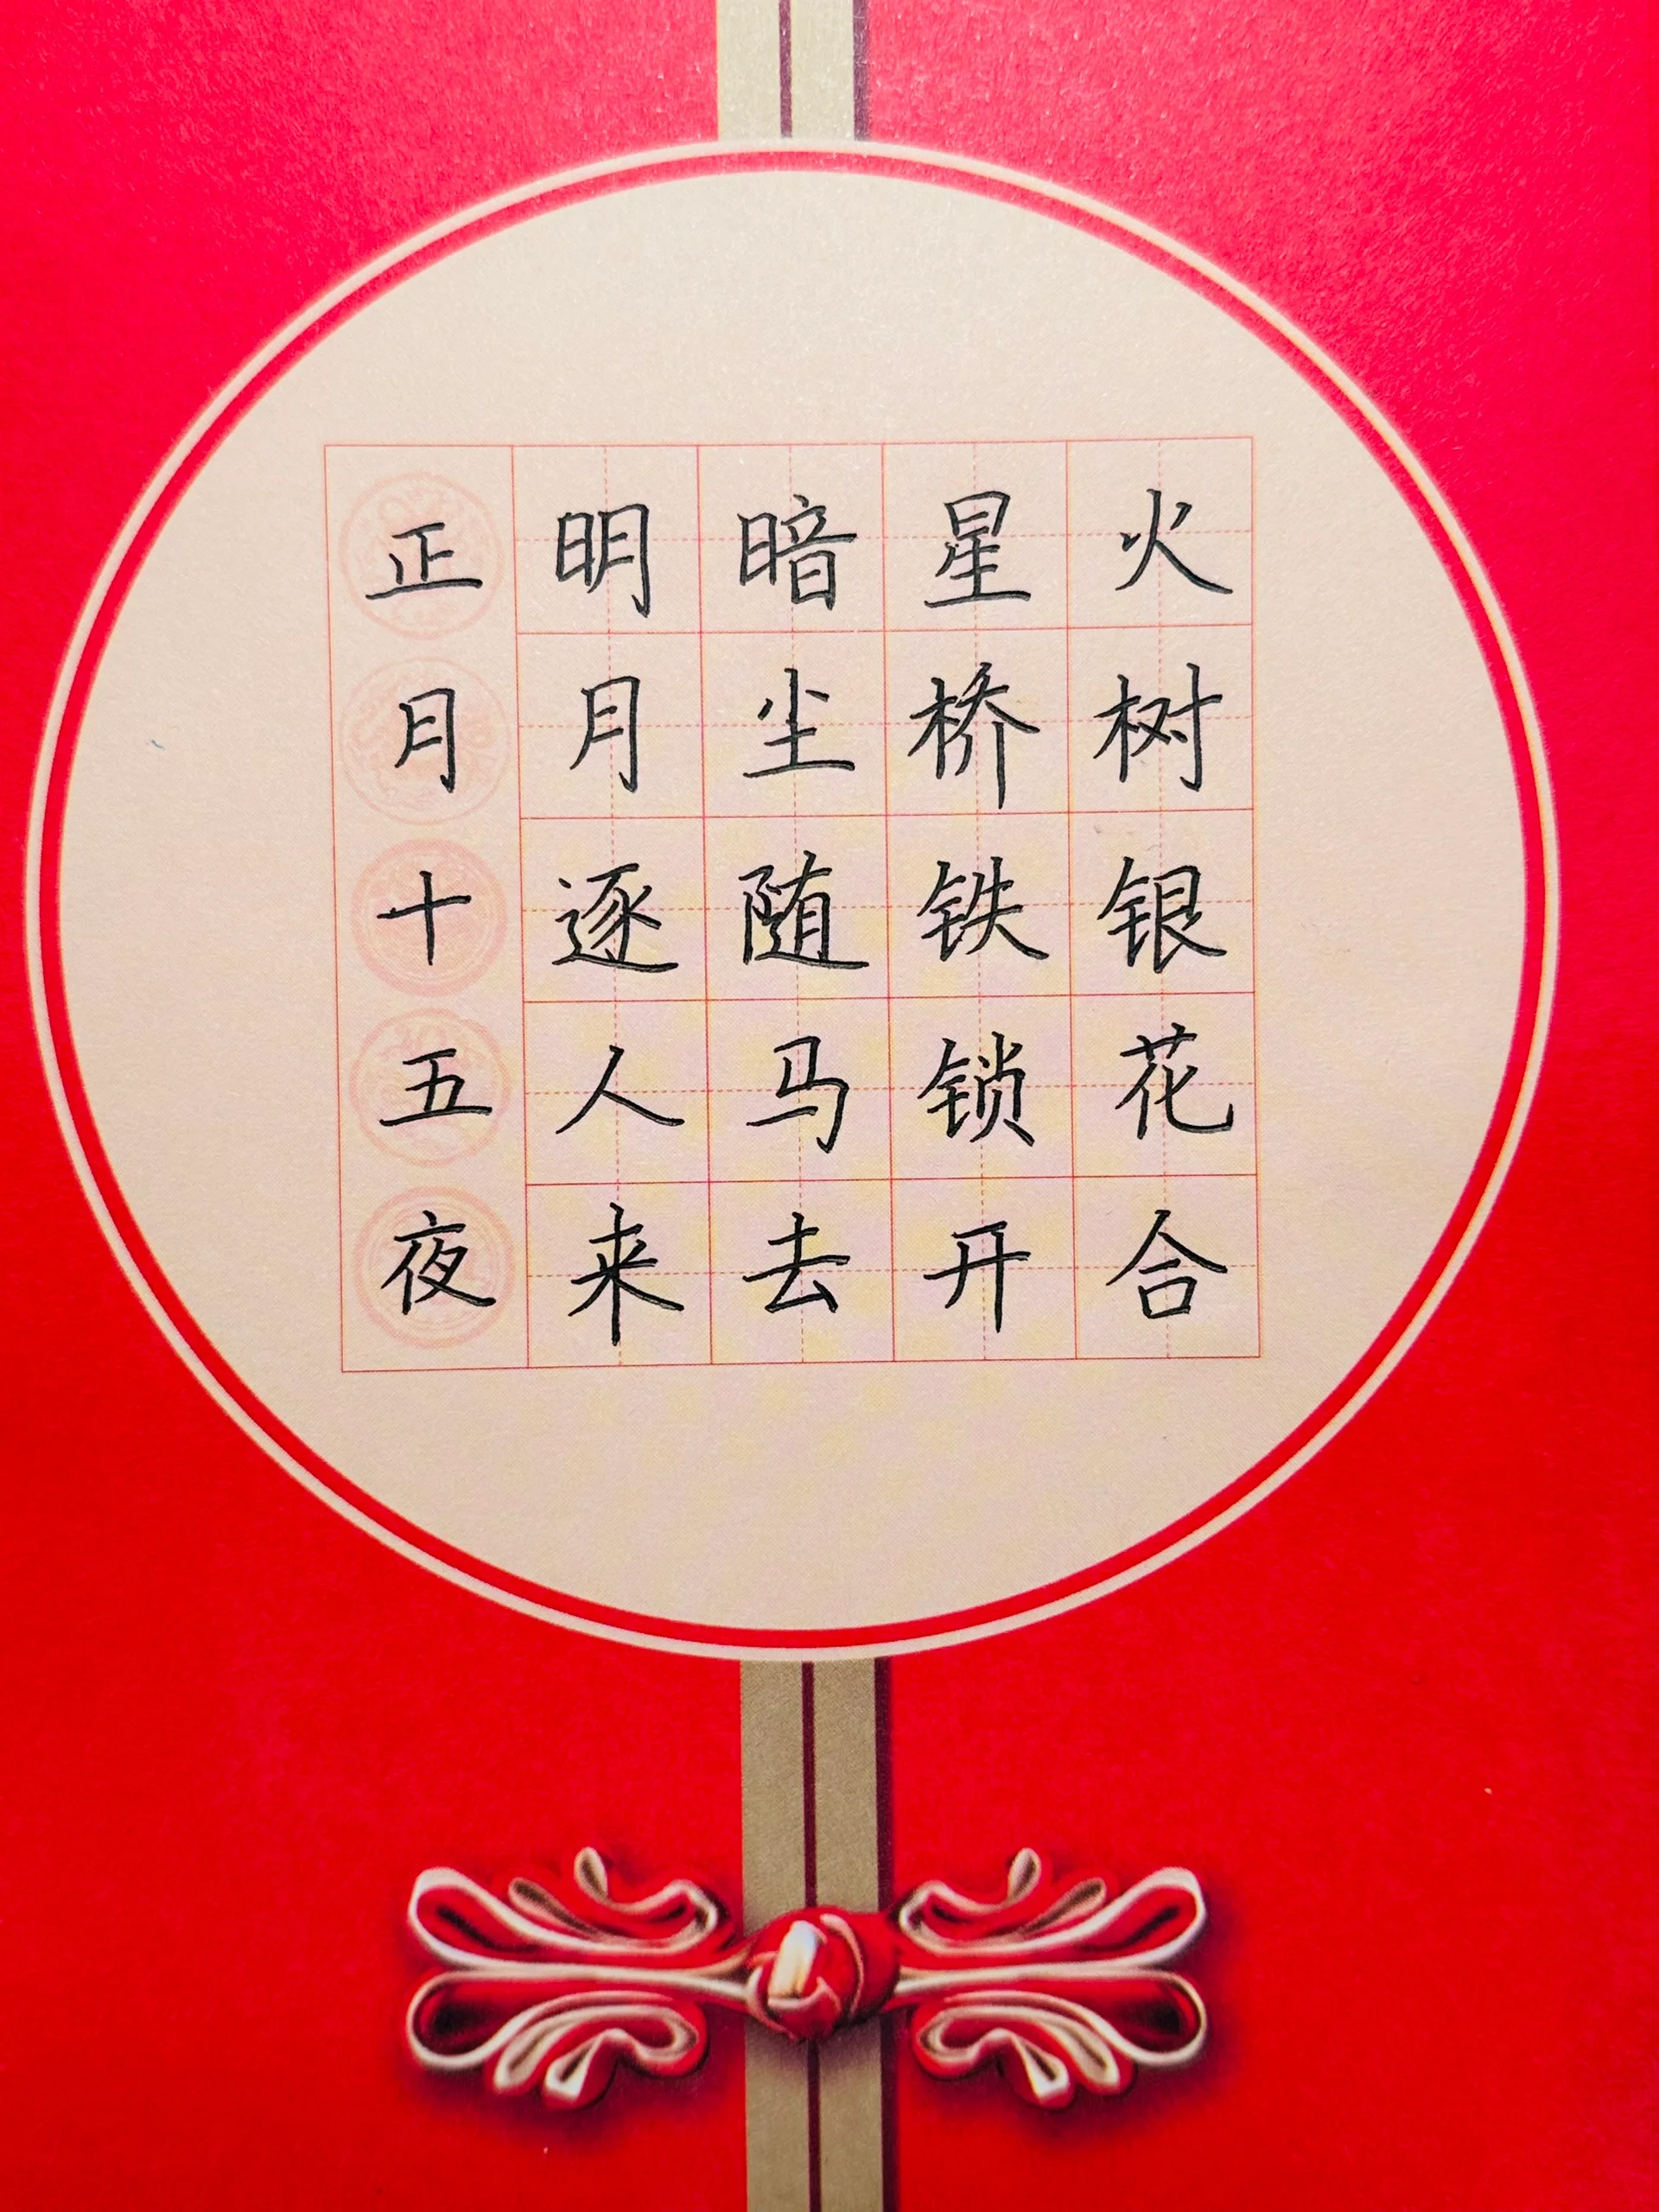 火树银花合
星桥铁锁开
暗尘随马去
明月逐人来
正月十五夜